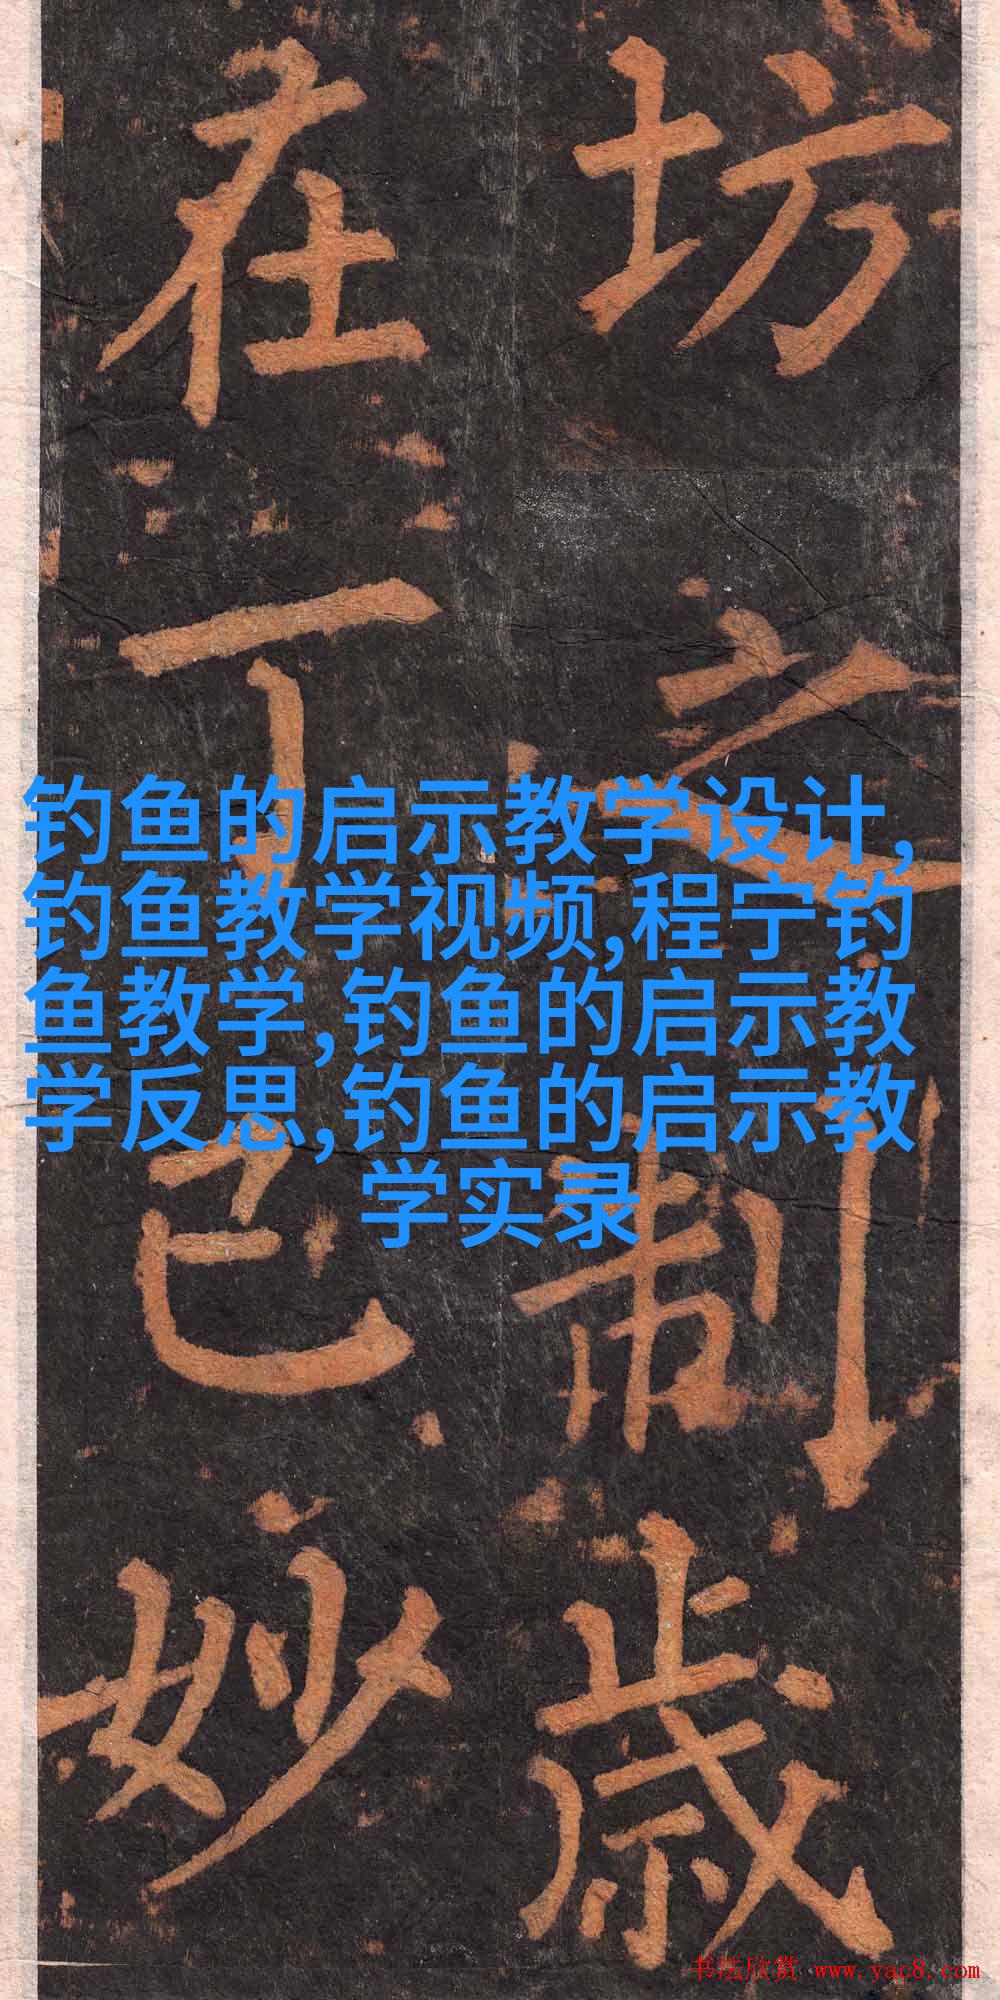 坊之制歲
在丁巳妙
钓鱼的启示教学设计,
钓鱼教学视频,程宁钓
鱼教学,钓鱼的启示教
学反思,钓鱼的启示教
学实录
书法欣赏 www.yac8.com